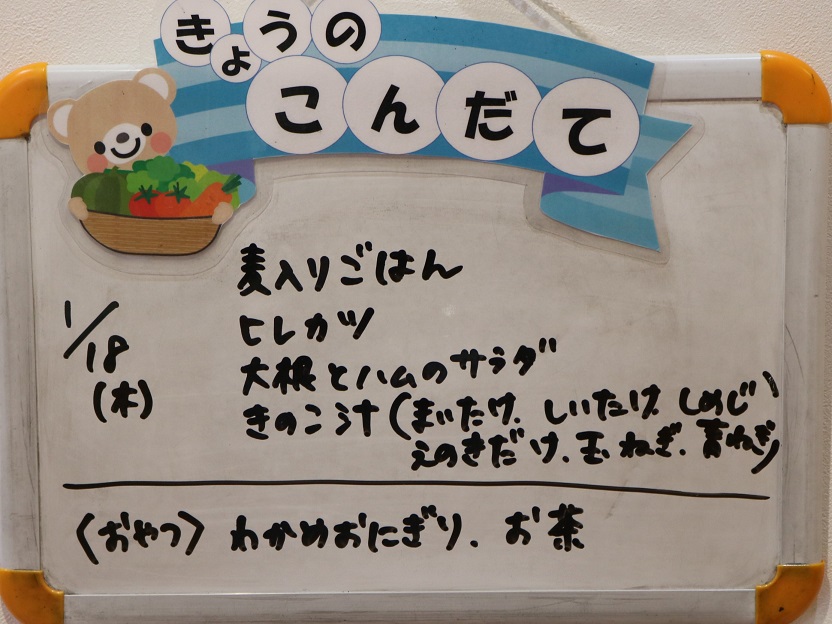 きょうの
こんだて
1/18
(木)
麦入りごはん
ヒレカツ
大根とハムのサラダ
きのこ汁(まいたけ、しいたけ、しめじ、
えのきだけ、玉ねぎ、青ねぎ)
〈おやつ〉わかめおにぎり、お茶